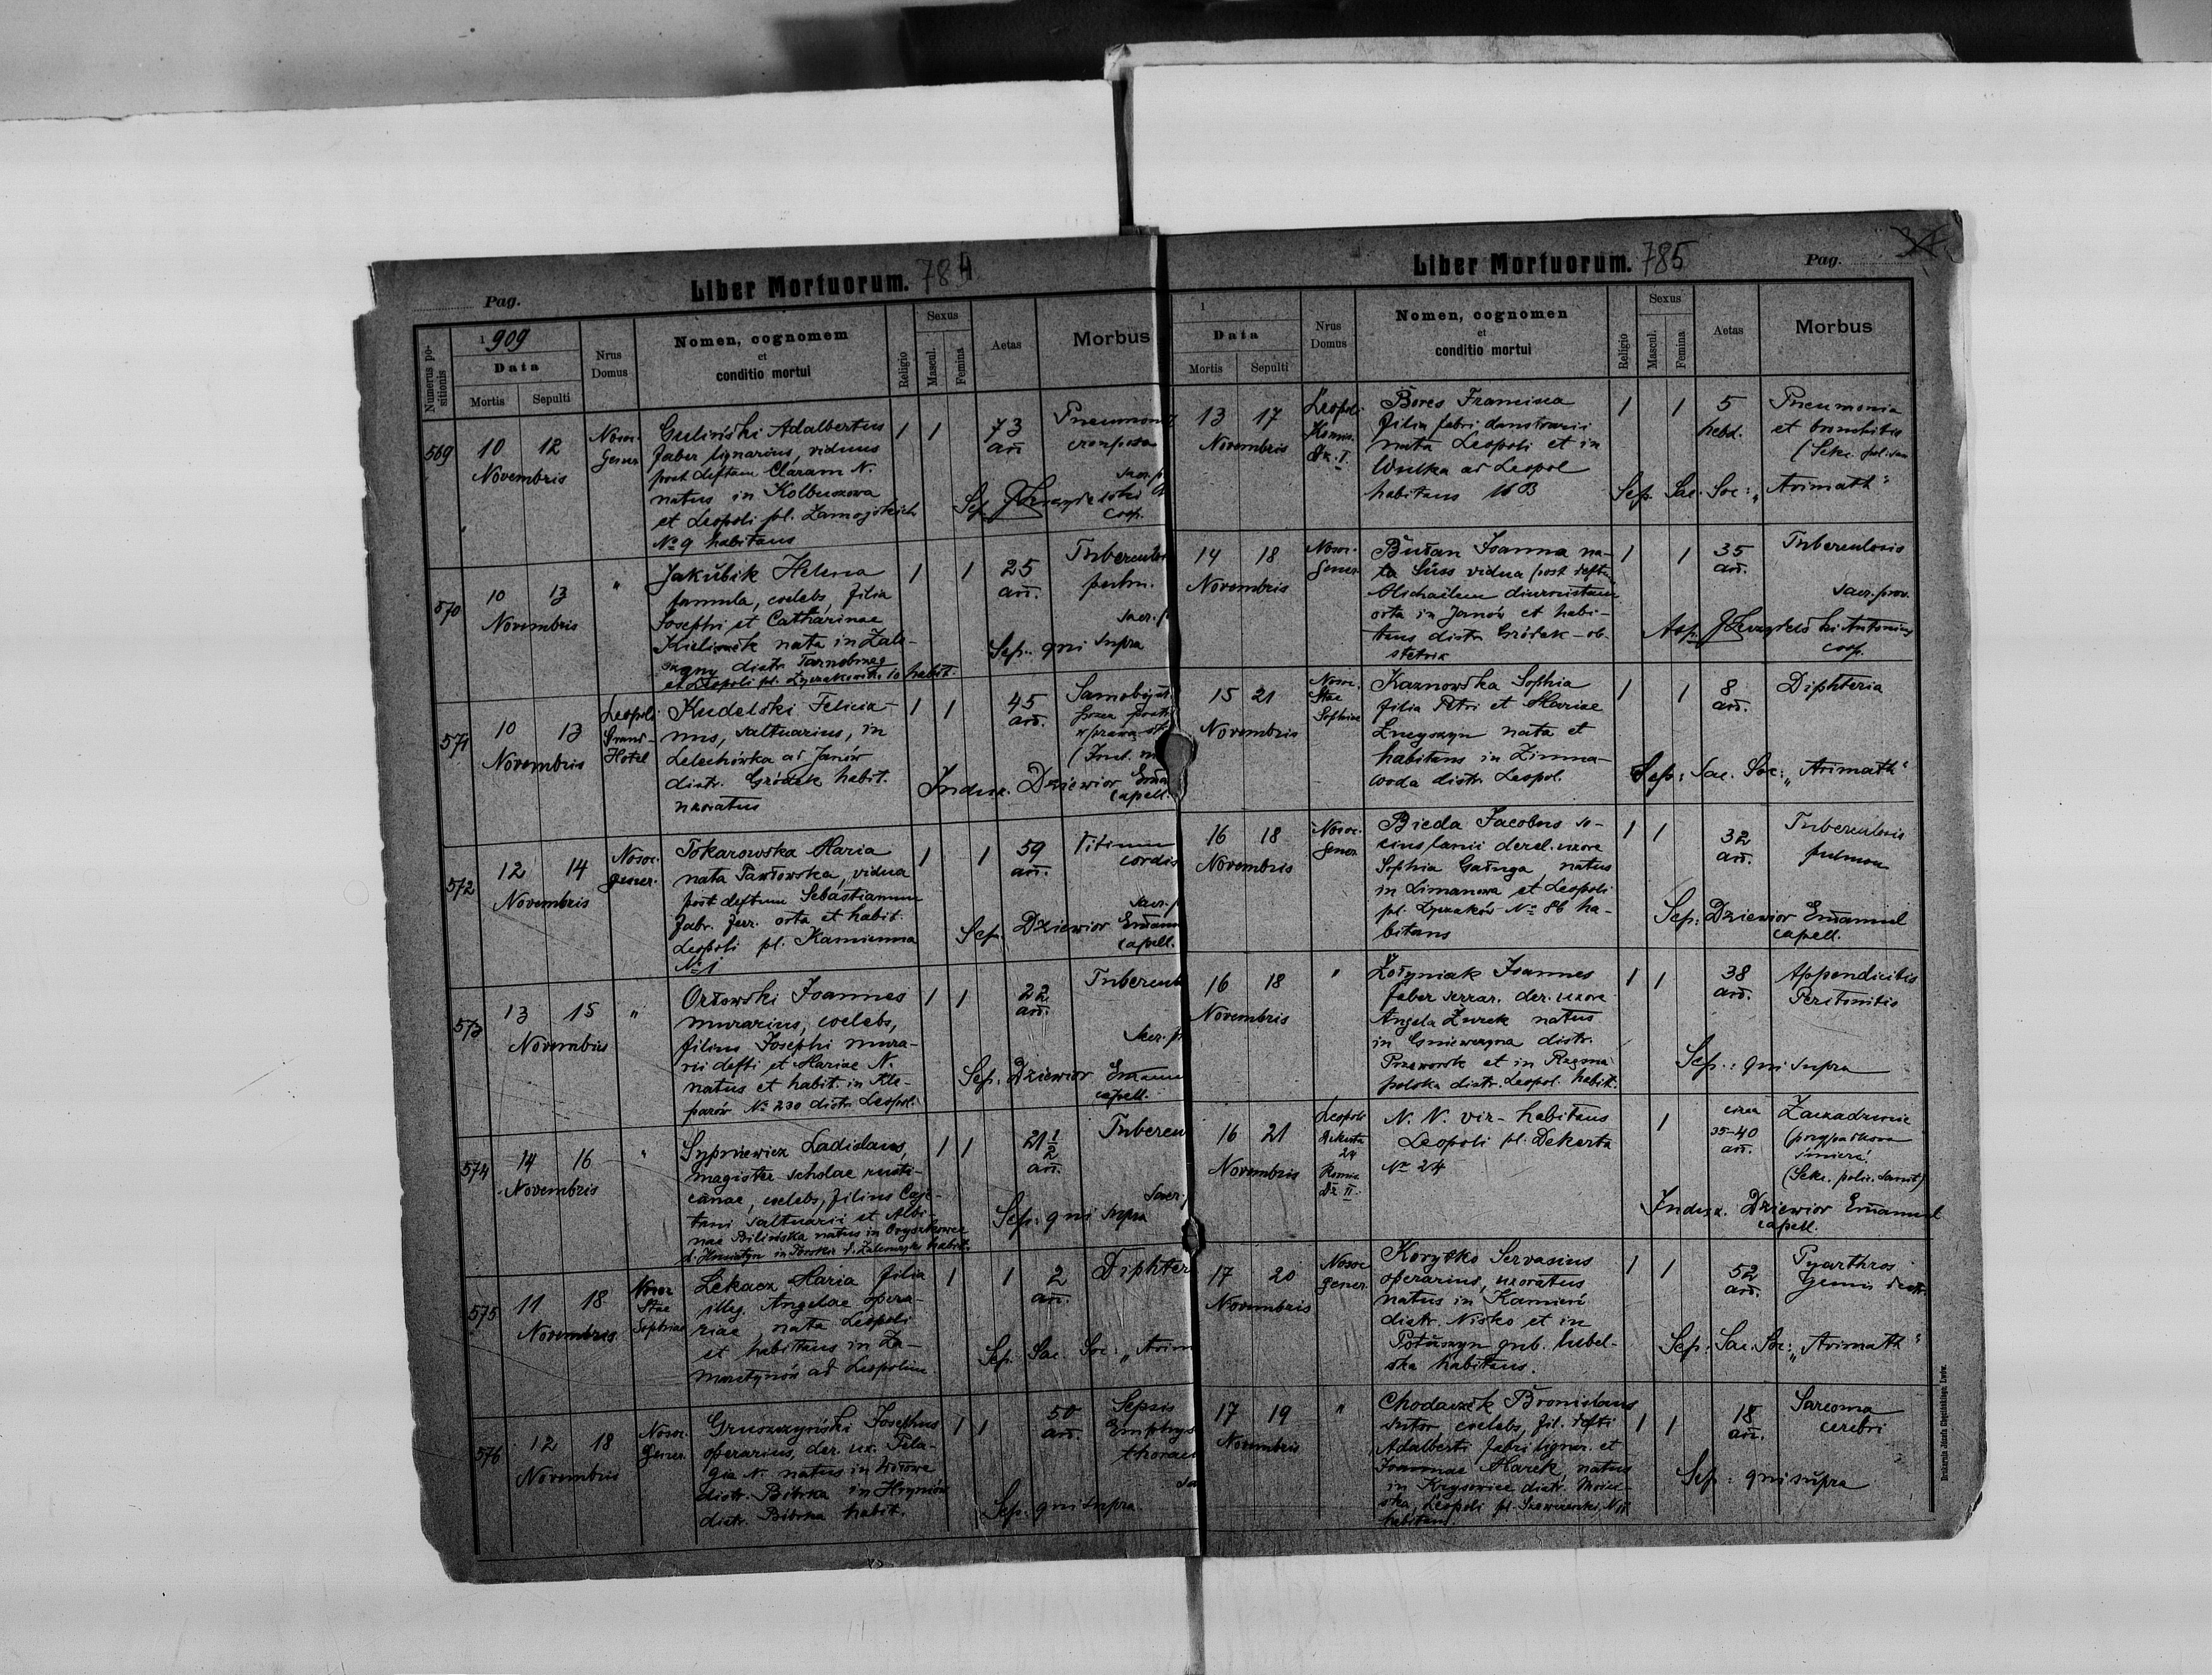 Pag.
Liber Mortuorum. 784
Numerus positionis
1909
Data
Mortis
Sepulti
Nrus Domus
Nomen, cognomem
et
conditio mortui
Religio
Sexus
Mascul.
Femina
Aetas
Morbus
569
10 12
Novembris
Nosoc.
gener
Guliński Adalbertus
faber lignarius, viduus
post deftam Claram N.
natus in Kolbuszowa
et Leopoli pl. Zamojskich
No 9 habitans
1 1
73
an̄
Pneumonia
crouposa
Sep.
coop.
570
10 13
Novembris
"
Jakubik Helena
famula, coelebs, filia
Josephi et Catharinae
nata in Zale-
distr. Tarnobrzeg
et Leopoli pl. Łyczakowska 10 habit.
1 1
25
an̄.
Tubercul
pulm.
Sep. qui supra
571
10 13
Novembris
Leopoli
Grand-
Hotel
Kudelski Felicia-
nus, saltuarius, in
Lelechówka ad Janów
distr. Gródek habit.
uxoratus
1 1
45
an̄.
Samobójst.
przez postrz
w prawą
Indux. Dziewior
capell.
572
12 14
Novembris
Nosoc.
gener.
Tokarowska Maria
nata Pawłowska, vidua
post deftum Sebastianum
fabr. ferr. orta et habit.
Leopoli pl. Kamienna
No 1
1 1
59
an̄.
Vitium
cordis
Sep. Dziewior
capell.
573
13 15
Novembris
"
Orłowski Joannes
murarius, coelebs,
filius Josephi mura-
rii defti et Mariae N.
natus et habit. in Kle-
parów No 230 distr. Leopol.
1 1
22
an̄.
Tubercul
Sep. Dziewior
capell.
574
14 16
Novembris
"
Sypniewicz Ladislaus,
magister scholae rusti-
canae, coelebs, filius Caje-
tani saltuarii et Albi-
nae Bilińska natus in Oryszkowce
1 1
21 1/2
an̄.
Tubercu
Sep. qui supra
575
11 18
Novembris
Nosoc
Stae
Sophiae
Lekacz Maria filia
illeg. Angelae opera-
riae nata Leopoli
et habitans in Za-
marstynów ad Leopolim
1 1
2
an̄.
Diphter
Sep. Sac. Soc: „Arim
576
12 18
Novembris
Nosoc.
gener.
Gruszczyński Josephus
operarius, der. ux. Pela-
gia N. natus in
distr. Bóbrka in Hryniów
distr. Bóbrka habit.
1 1
50
an̄.
Sepsis
thorac
Sep. qui supra
Liber Mortuorum. 785
Pag.
1
Data
Mortis
Sepulti
Nrus
Domus
Nomen, cognomen
et
conditio mortui
Religio
Sexus
Mascul.
Femina
Aetas
Morbus
13 17
Novembris
Leopoli
Dz. I.
Bores Francisca
filia fabri
nata Leopoli et in
Wulka ad Leopol
habitans 16 B
1 1
5
hebd.
Pneumonia
et bronchitis
Sep. Sac. Soc: „Arimath"
14 18
Novembris
Nosoc.
gener
Bułan Joanna na-
ta Süss vidua post deft.
Michaëlem diurnistam
orta in Janów et habi-
tans distr. Gródek - ob-
stetrix
1 1
35
an̄.
Tuberculosis
sacr. prov.
Antonius
coop.
15 21
Novembris
Nosoc.
Stae
Sophiae
Kaznowska Sophia
filia Petri et Mariae
nata et
habitans in Zimna-
woda distr. Leopol.
1 1
8
an̄.
Diphteria
Sep: Sac. Soc: „Arimath"
16 18
Novembris
Nosoc.
gener
Bieda Jacobus so-
cius lanii derel. uxore
Sophia Gaługa, natus
in Limanowa et Leopoli
pl. Łyczaków No 86 ha-
bitans
1 1
32
an̄.
Tuberculosis
pulmon
Sep: Dziewior Emanuel
capell.
16 18
Novembris
"
Żołyniak Joannes
faber serrar. der. uxore
Angela Żurek natus
in Gniewczyna distr.
Przeworsk et in Rzęsna
polska distr. Leopol. habit.
1 1
38
an̄.
Appendicitis
Peritonitis
Sep.: qui supra
16 21
Novembris
Leopoli
Dekerta
24
Dz II.
N. N. vir - habitans
Leopoli pl. Dekerta
No 24
1
circa
35-40
an̄.
Zaczadzenie
(przypadkowa
śmierć.
(Sekc. polic. sanit)
Indux. Dziewior Emanuel
capell.
17 20
Novembris
Nosoc
gener.
Korytko Servasius
operarius, uxoratus
natus in Kamień
distr. Nisko et in
Poturzyn gub. lubel-
ska habitans.
1 1
52
an̄.
Pyarthros
genus dextr.
Sep. Sac. Soc: „Arimath"
17 19
Novembris
"
Chodaczek Bronislaus
sutor coelebs, fil. defti
Adalberti fabri lignar. et
Joannae Marek, natus
in Krysowice distr. Mości-
ska, Leopoli pl. Szewczenki, N
habitans.
1 1
18
an̄.
Sarcoma
cerebri
Sep: qui supra